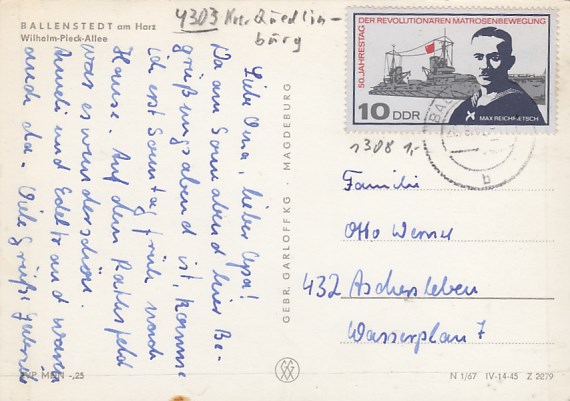 BALLENSTEDT am Harz
Wilhelm-Pieck-Allee
4303 Krs. Quedlin-
burg
Liebe Oma, lieber Opa!
Da am Sonnabend hier Be-
grüßungsabend ist, komme
ich erst Sonntag früh nach
Hause. Auf dem Ratsfeld
was es wunderschön.
und waren
auch da. Viele Grüße
GEBR. GARLOFF KG · MAGDEBURG
50. JAHRESTAG DER REVOLUTIONÄREN MATROSENBEWEGUNG
10 DDR
MAX REICHPIETSCH
b
1308 1,-
Familie
Otto Werner
432 Aschersleben
Wasserplan 7
EVP MDN -,25
N 1/67 IV-14-45 Z 2279